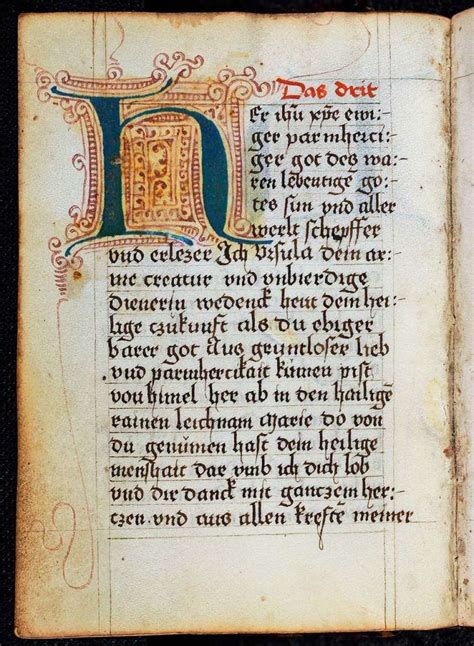 Das drit
Er ihu xpe ewi:-
ger parmherci:-
ger got des wa:-
ren lebentigē go:-
tes sun vnd aller
werlt schepffer
vnd erlezer Ich vrsula dein ar:-
me creatur vnd vnbierdige
dienerin wedenck heut dein hei:-
lige czukunft als du ebiger
barer got Aus gruntloser lieb
vnd parmhercikait kūmen pist
von himel her ab in den hailigē
rainen leichnam Marie do von
du genūmen hast dein heilige
menshait dar vmb ich dich lob
vnd dir danck mit ganczem her:-
czen vnd aus allen kreftē meiner